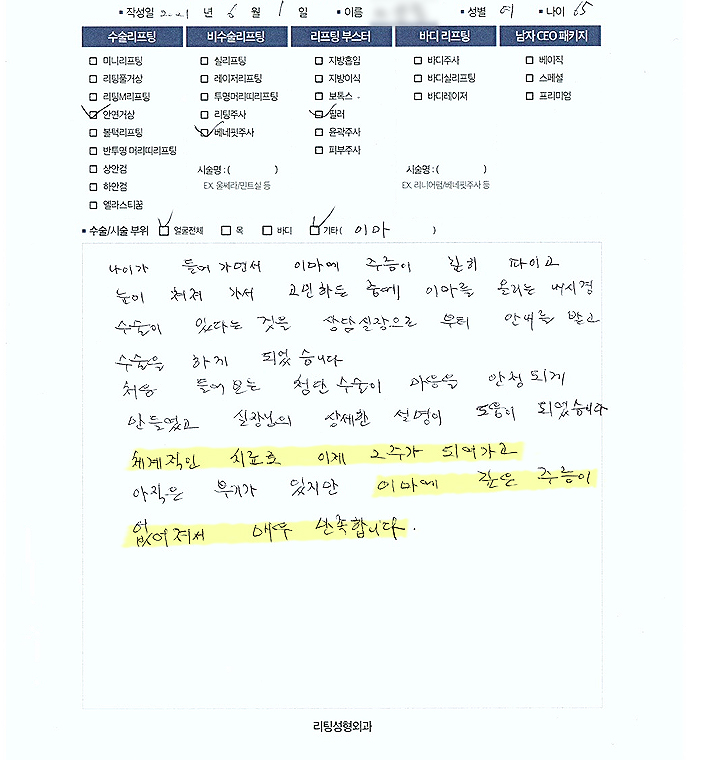 ▪ 작성일 2021 년 6 월 1 일 ▪ 이름 ▪ 성별 여 ▪ 나이 65
수술리프팅 비수술리프팅 리프팅 부스터 바디 리프팅 남자 CEO 패키지
미니리프팅 실리프팅 지방흡입 바디주사 베이직
리팅풀거상 레이저리프팅 지방이식 바디실리프팅 스페셜
리팅M리프팅 투명머리띠리프팅 보톡스 바디레이저 프리미엄
안면거상 리팅주사 필러
볼턱리프팅 베네핏주사 윤곽주사
반투명 머리띠리프팅 피부주사
상안검 시술명 : ( ) 시술명 : ( )
하안검 EX. 울쎄라/민트실 등 EX. 리니어펌/베네핏주사 등
엘라스티꿈
▪ 수술/시술 부위 얼굴전체 목 바디 기타 ( 이마 )
나이가 들어 가면서 이마에 주름이 심히 파이고
눈이 쳐져 가서 고민하든 중에, 이마를 올리는 내시경
수술이 있다는 것을 상담실장으로 부터 안내를 받고
수술을 하게 되었습니다
처음 들어보는 첨단 수술이 마음을 안정되게
만들었고 실장님의 상세한 설명이 도움이 되었습니다
체계적인 치료로 이제 2주가 되어가고
아직은 부기가 있지만 이마에 깊은 주름이
없어져서 매우 만족합니다.
리팅성형외과